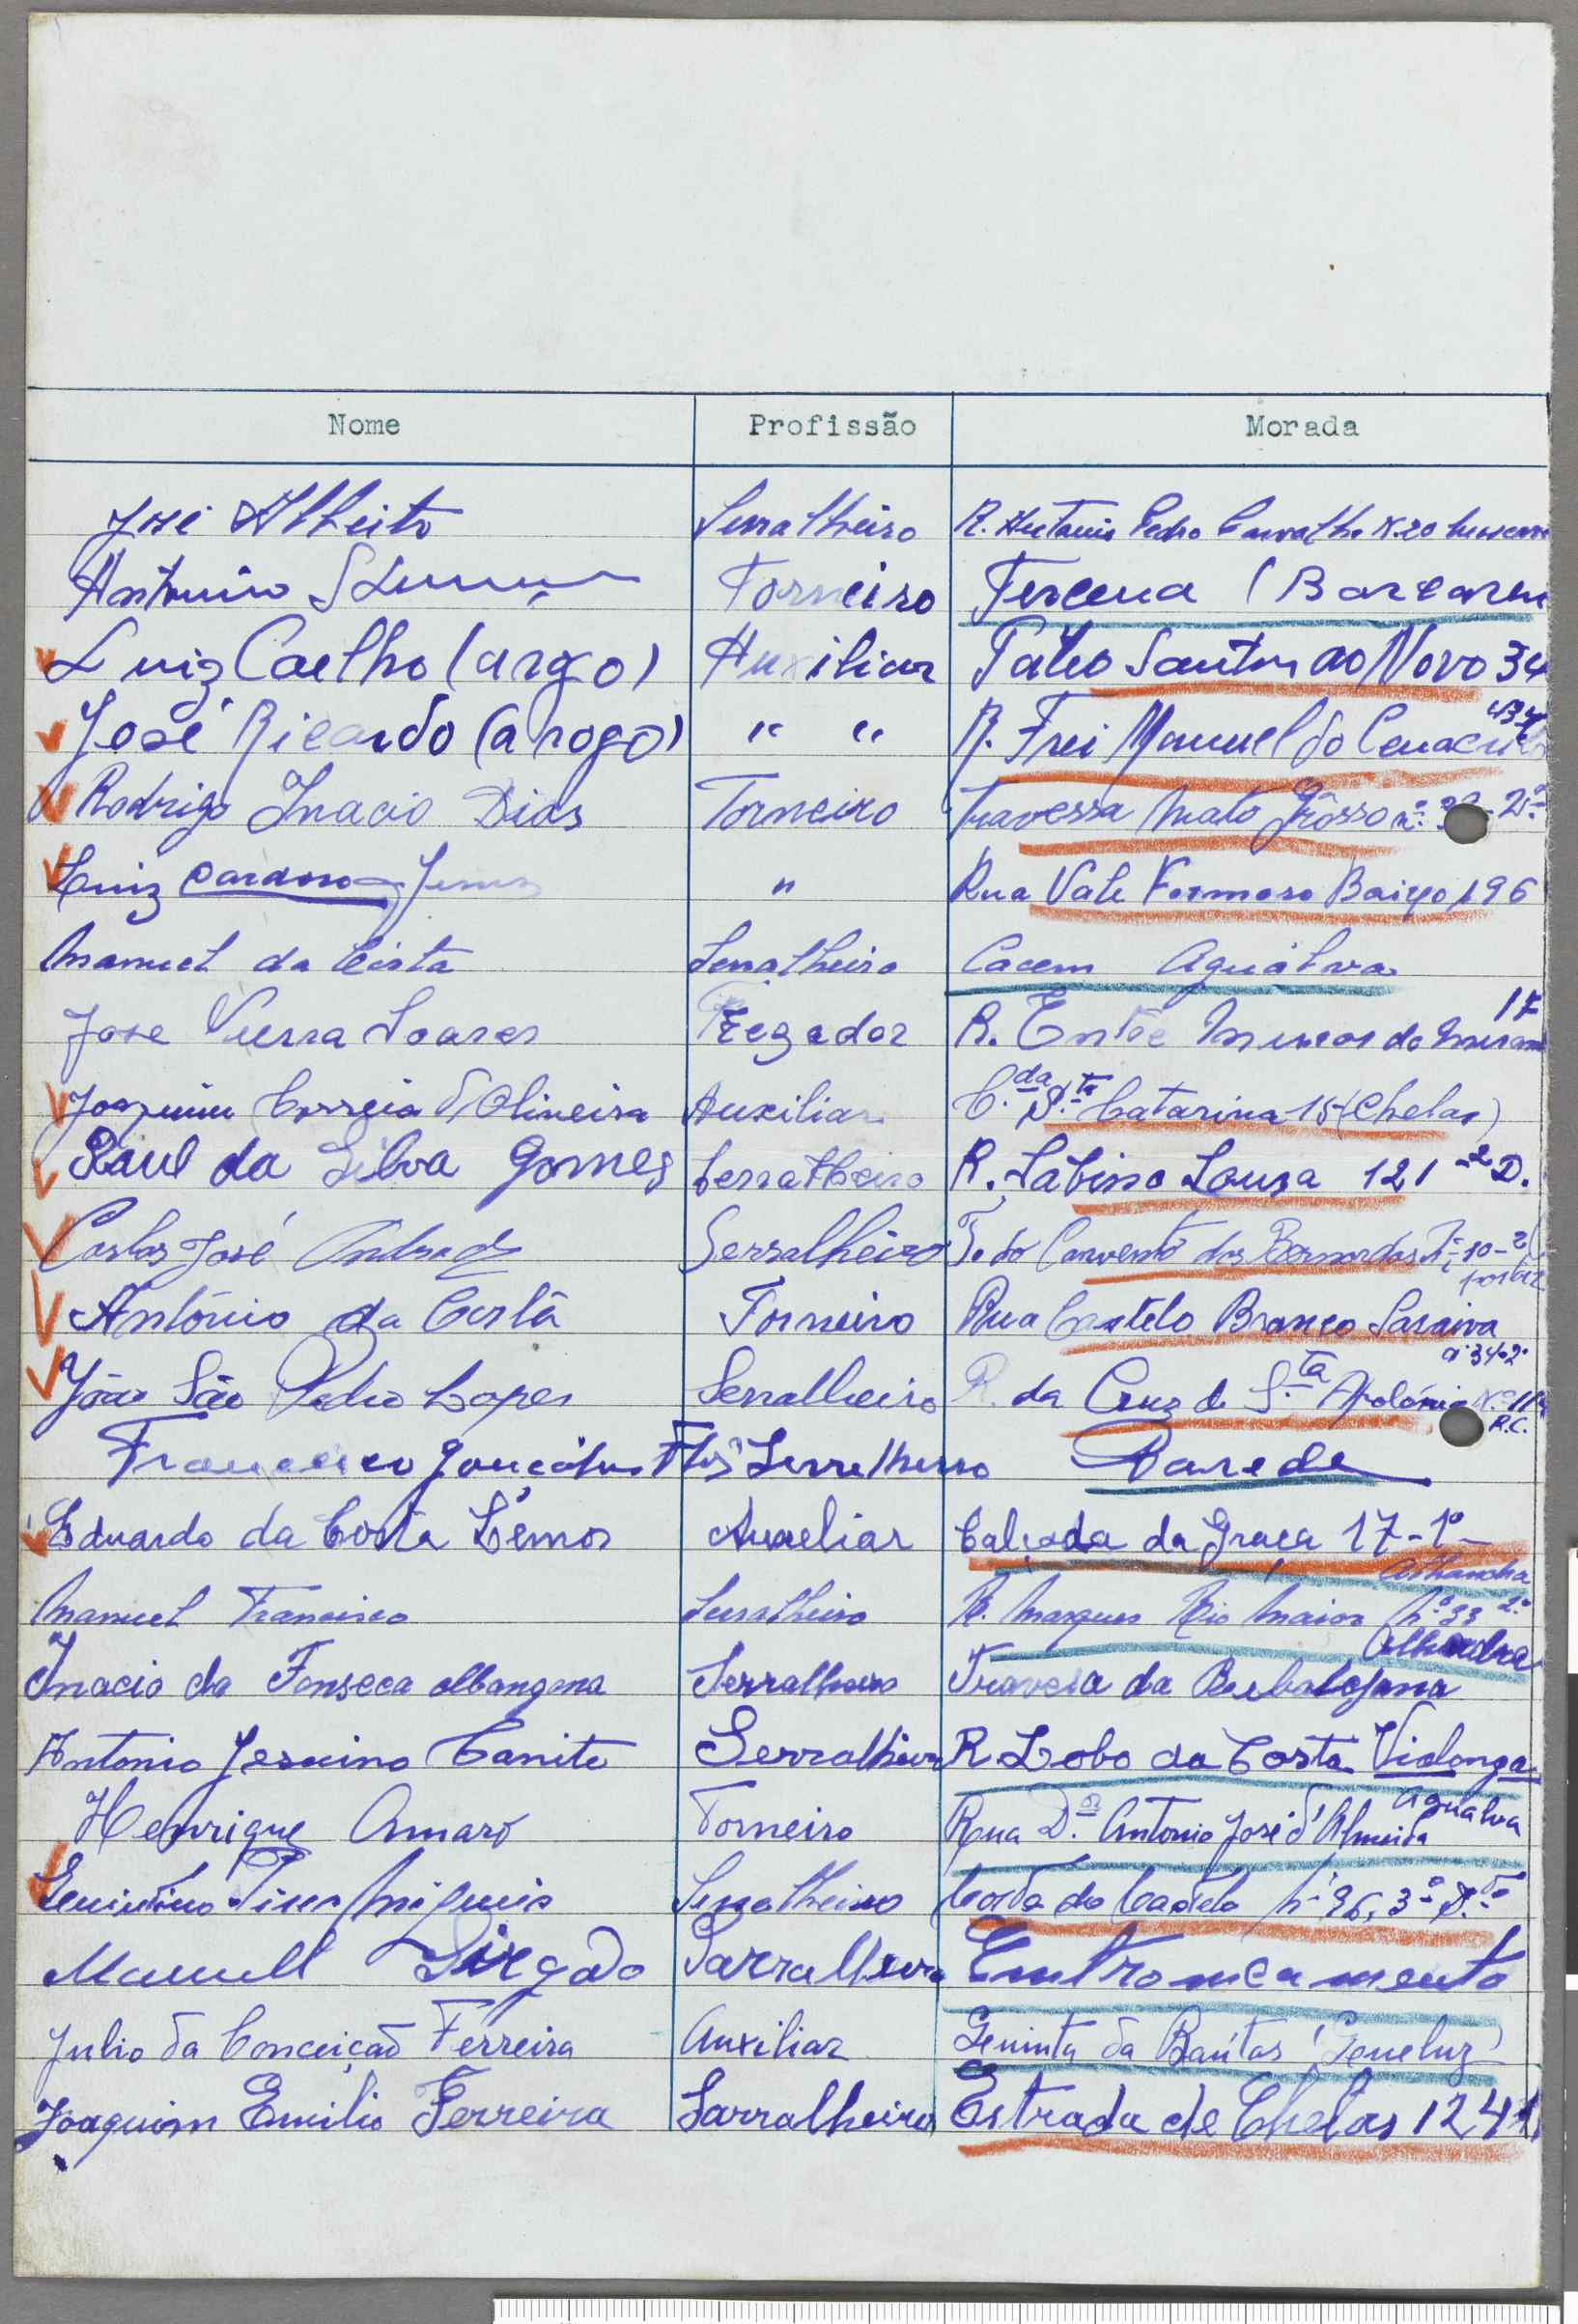 Nome Profissão Morada
José Alfeito Serralheiro R. Antonio Pedro Carvalho N.20
Antonio Torneiro Tercena (Barcarena
Luiz Coelho (argo) Auxiliar Páteo Santos ao Novo 34
José Ricardo (a rogo) " " R. Frei Manuel do Cenaculo
Rodrigo Inacio Dias Torneiro Travessa Mato Grôsso nº 2º
Luiz Cardoso Jesus " Rua Vale Formoso Baixo 196
Manuel da Costa Serralheiro Cacem Agualva
17
Jose Vieira Soares Frezador R. Entre Muros do Miran
Joaquim Correia d'Oliveira Auxiliar C.da S.ta Catarina 15 (Chelas)
Raul da Silva Gomes Serralheiro R. Sabino Sousa 121 - 2 D.
Carlos José Andrade Serralheiro T. do Convento das Bernardas Nº 10-2
António da Costa Torneiro Rua Castelo Branco Saraiva
nº 34-2º
João São Pedro Lopes Serralheiro R. da Cruz de S.ta Apolónia Nº 114
R.C.
Francisco Gonçalves Serralheiro Parede
Eduardo da Costa Lémos Auxeliar Calçada da Graça 17-1º
Alhandra
Manuel Francisco Serralheiro R. Marques Rio Maior Nº 33 2º
Alhandra
Inacio da Fonseca Serralheiro Travessa da
Antonio Jesuino Canito Serralheiro R Lobo da Costa Vialonga
Agualva
Henrique Amaro Torneiro Rua D.or Antonio José d'Almeida
Pires Serralheiro Costa do Castelo Nº 36, 3º D.to
Manuel Sirgado Sarralheiro Entroncamento
Julio da Conceição Ferreira Auxiliar da Bantas (Queluz)
Joaquim Emilio Ferreira Sarralheiro Estrada de Chelas 124